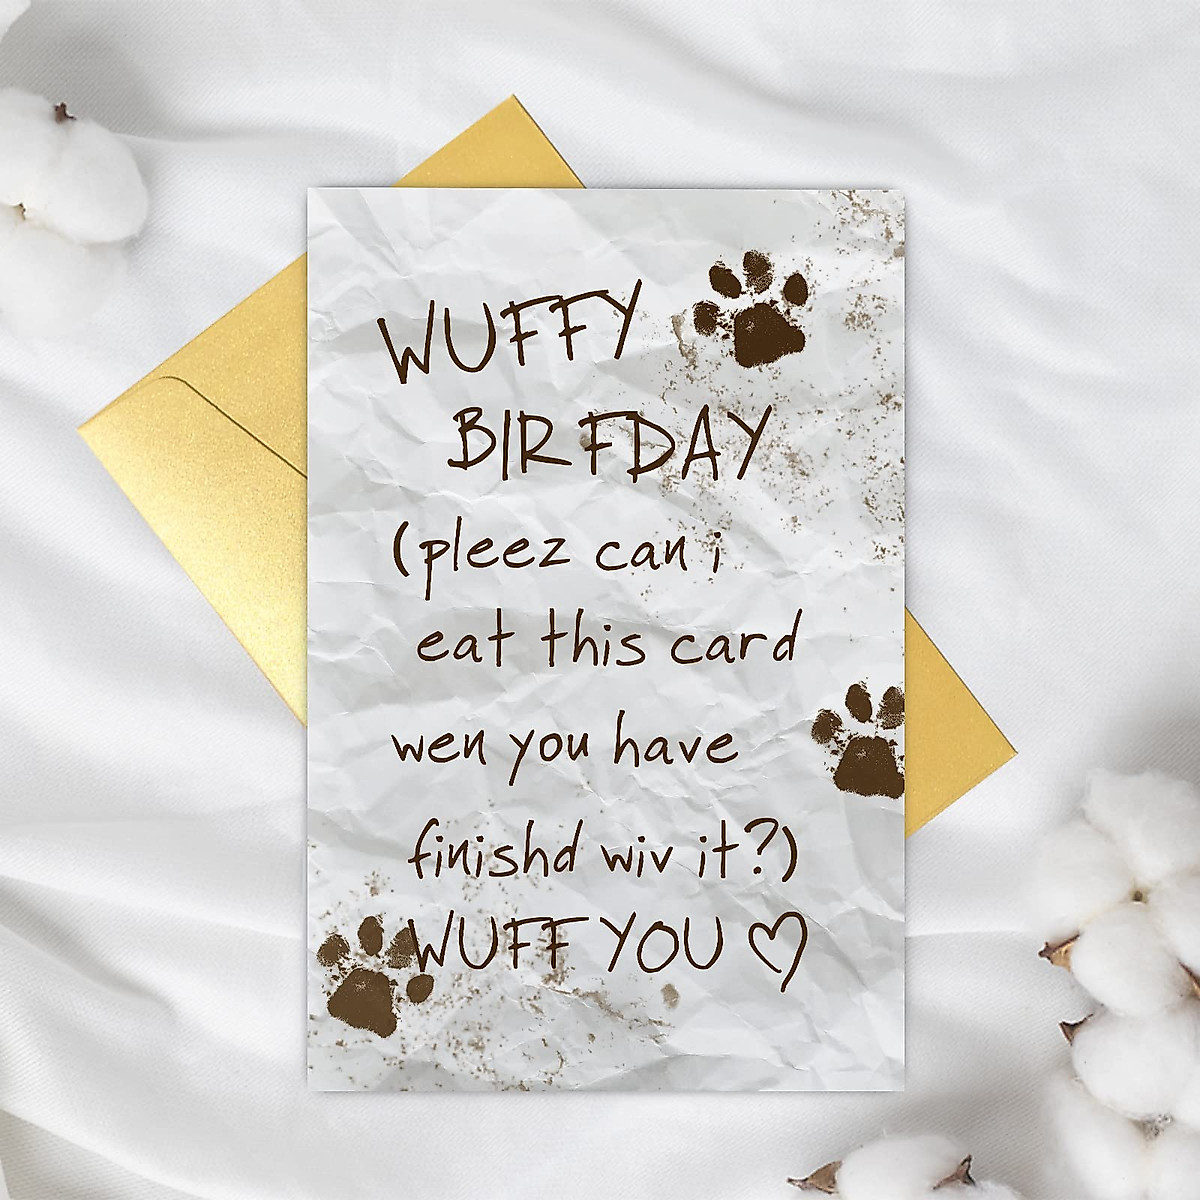 WUFFY
BIRFDAY
(pleez can i
eat this card
wen you have
finishd wiv it?)
WUFF YOU ♡